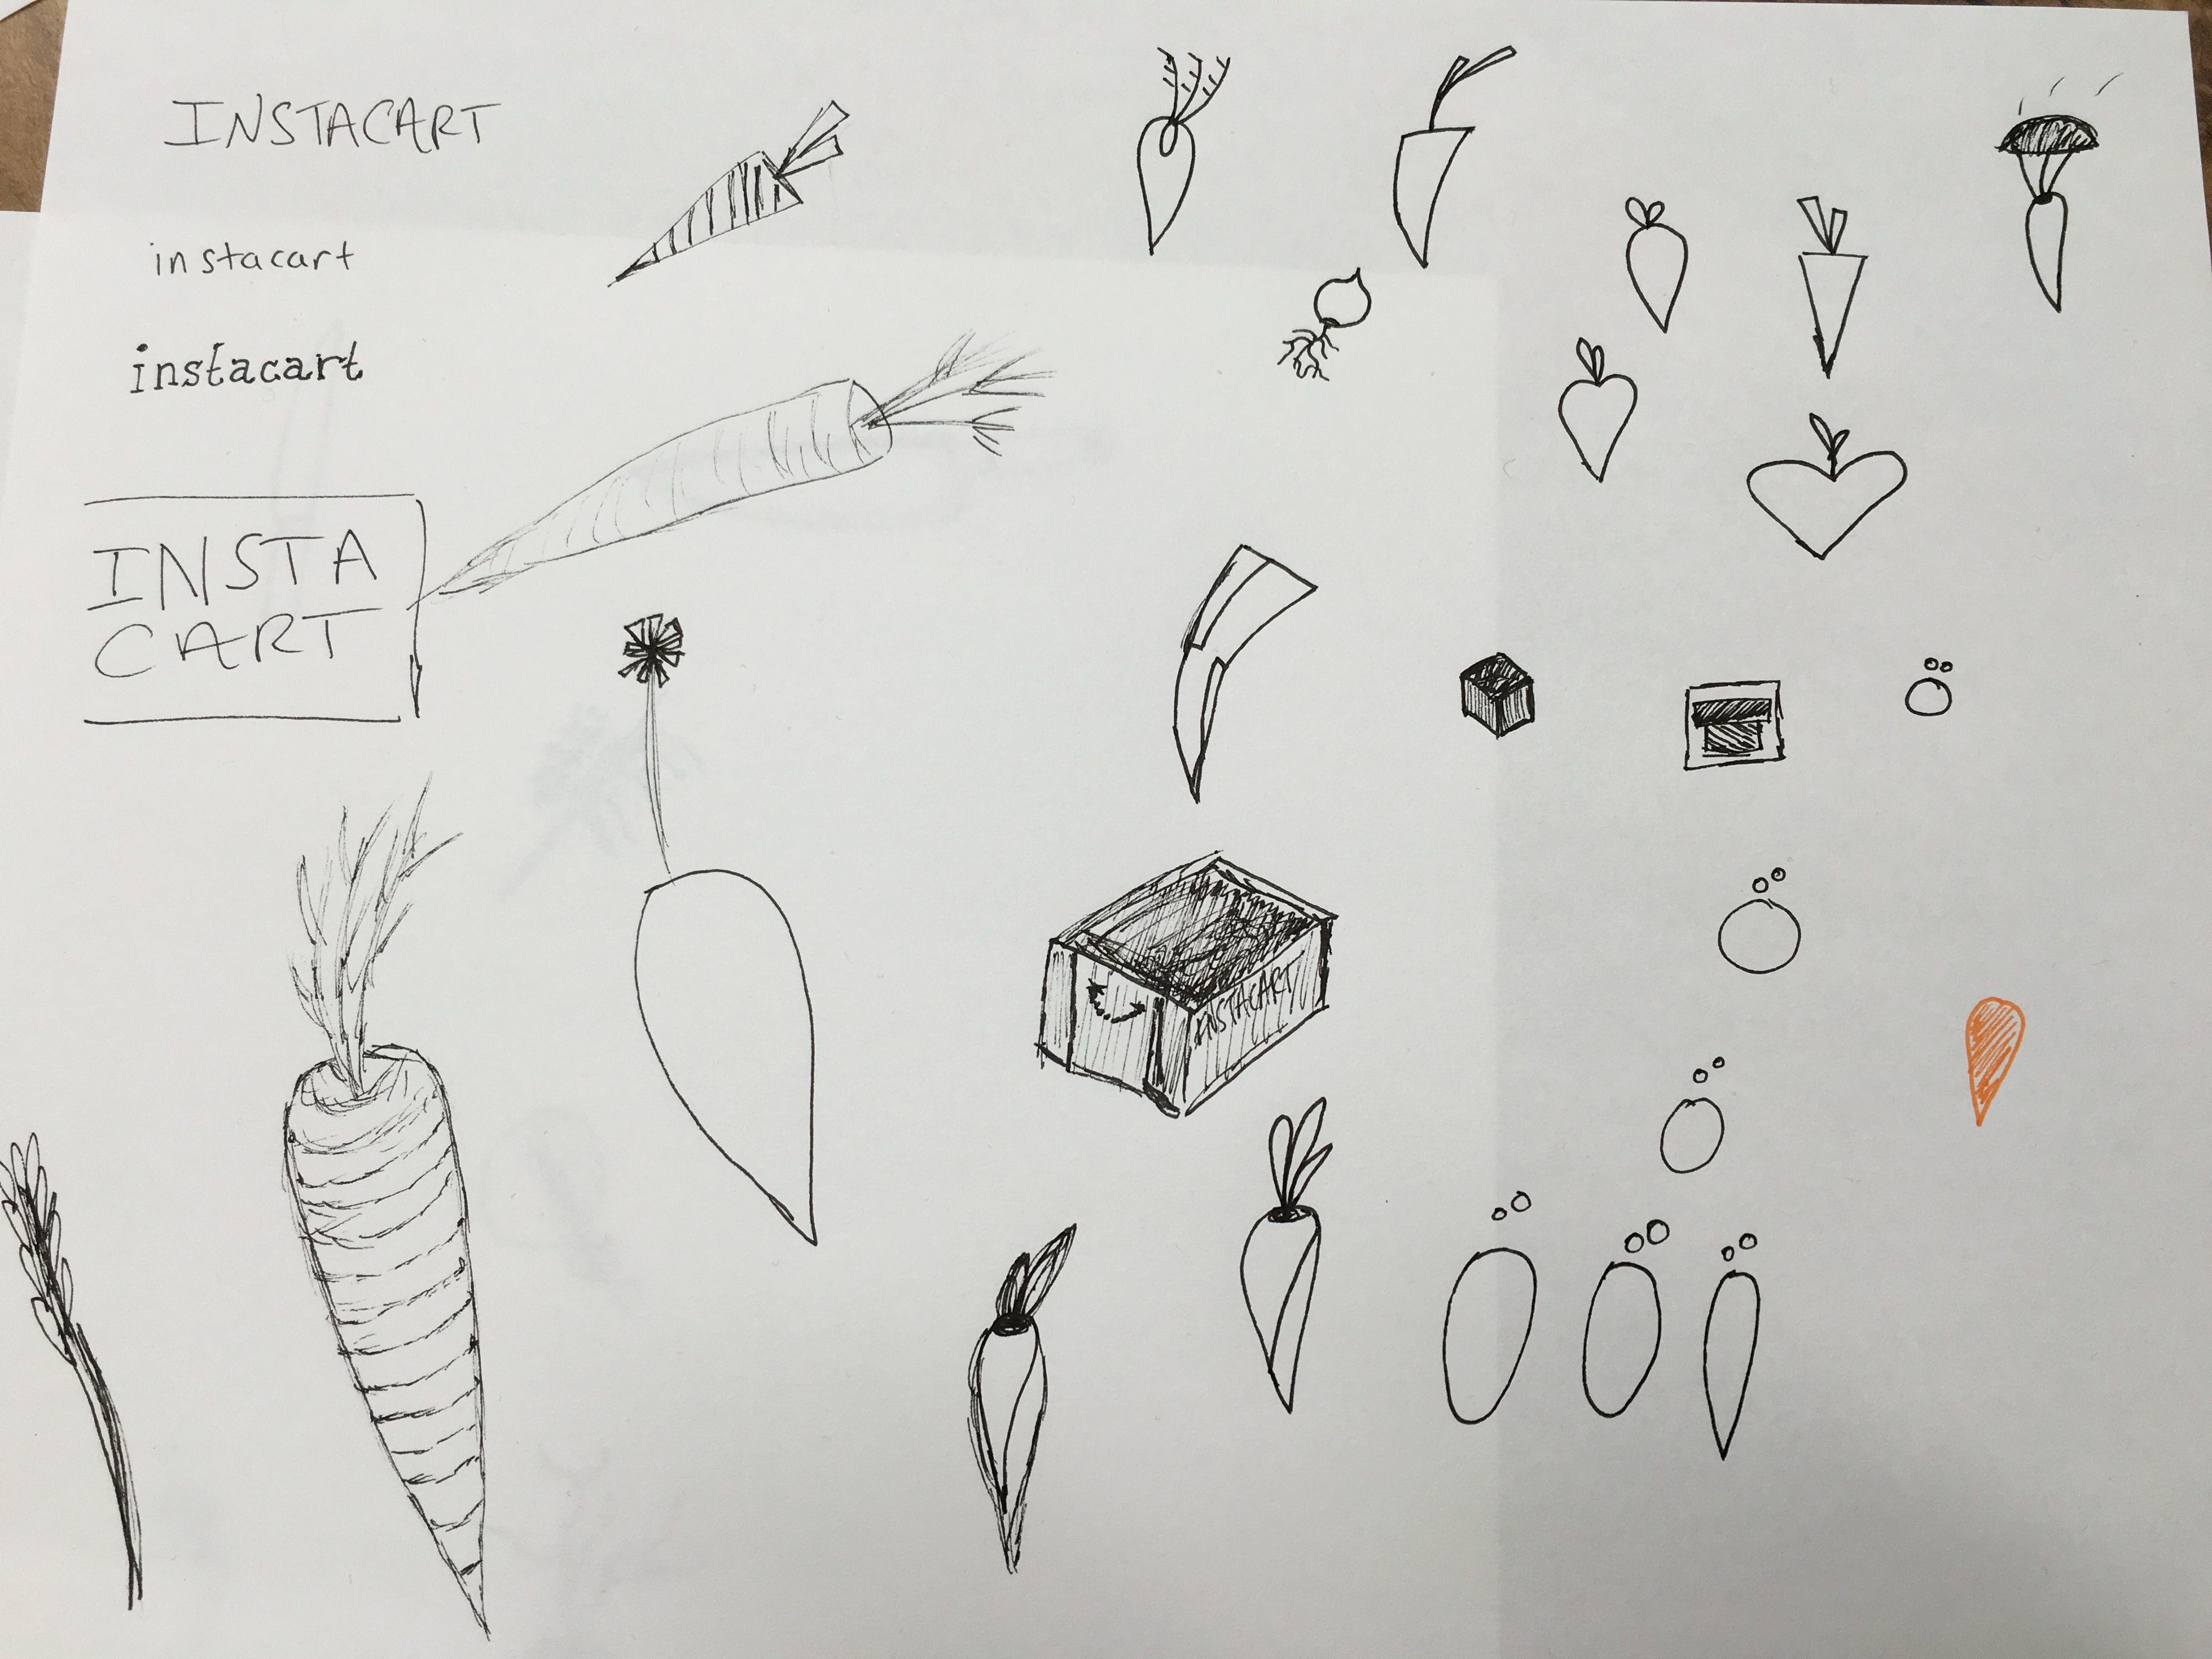 INSTACART
instacart
instacart
INSTA
CART
INSTACART